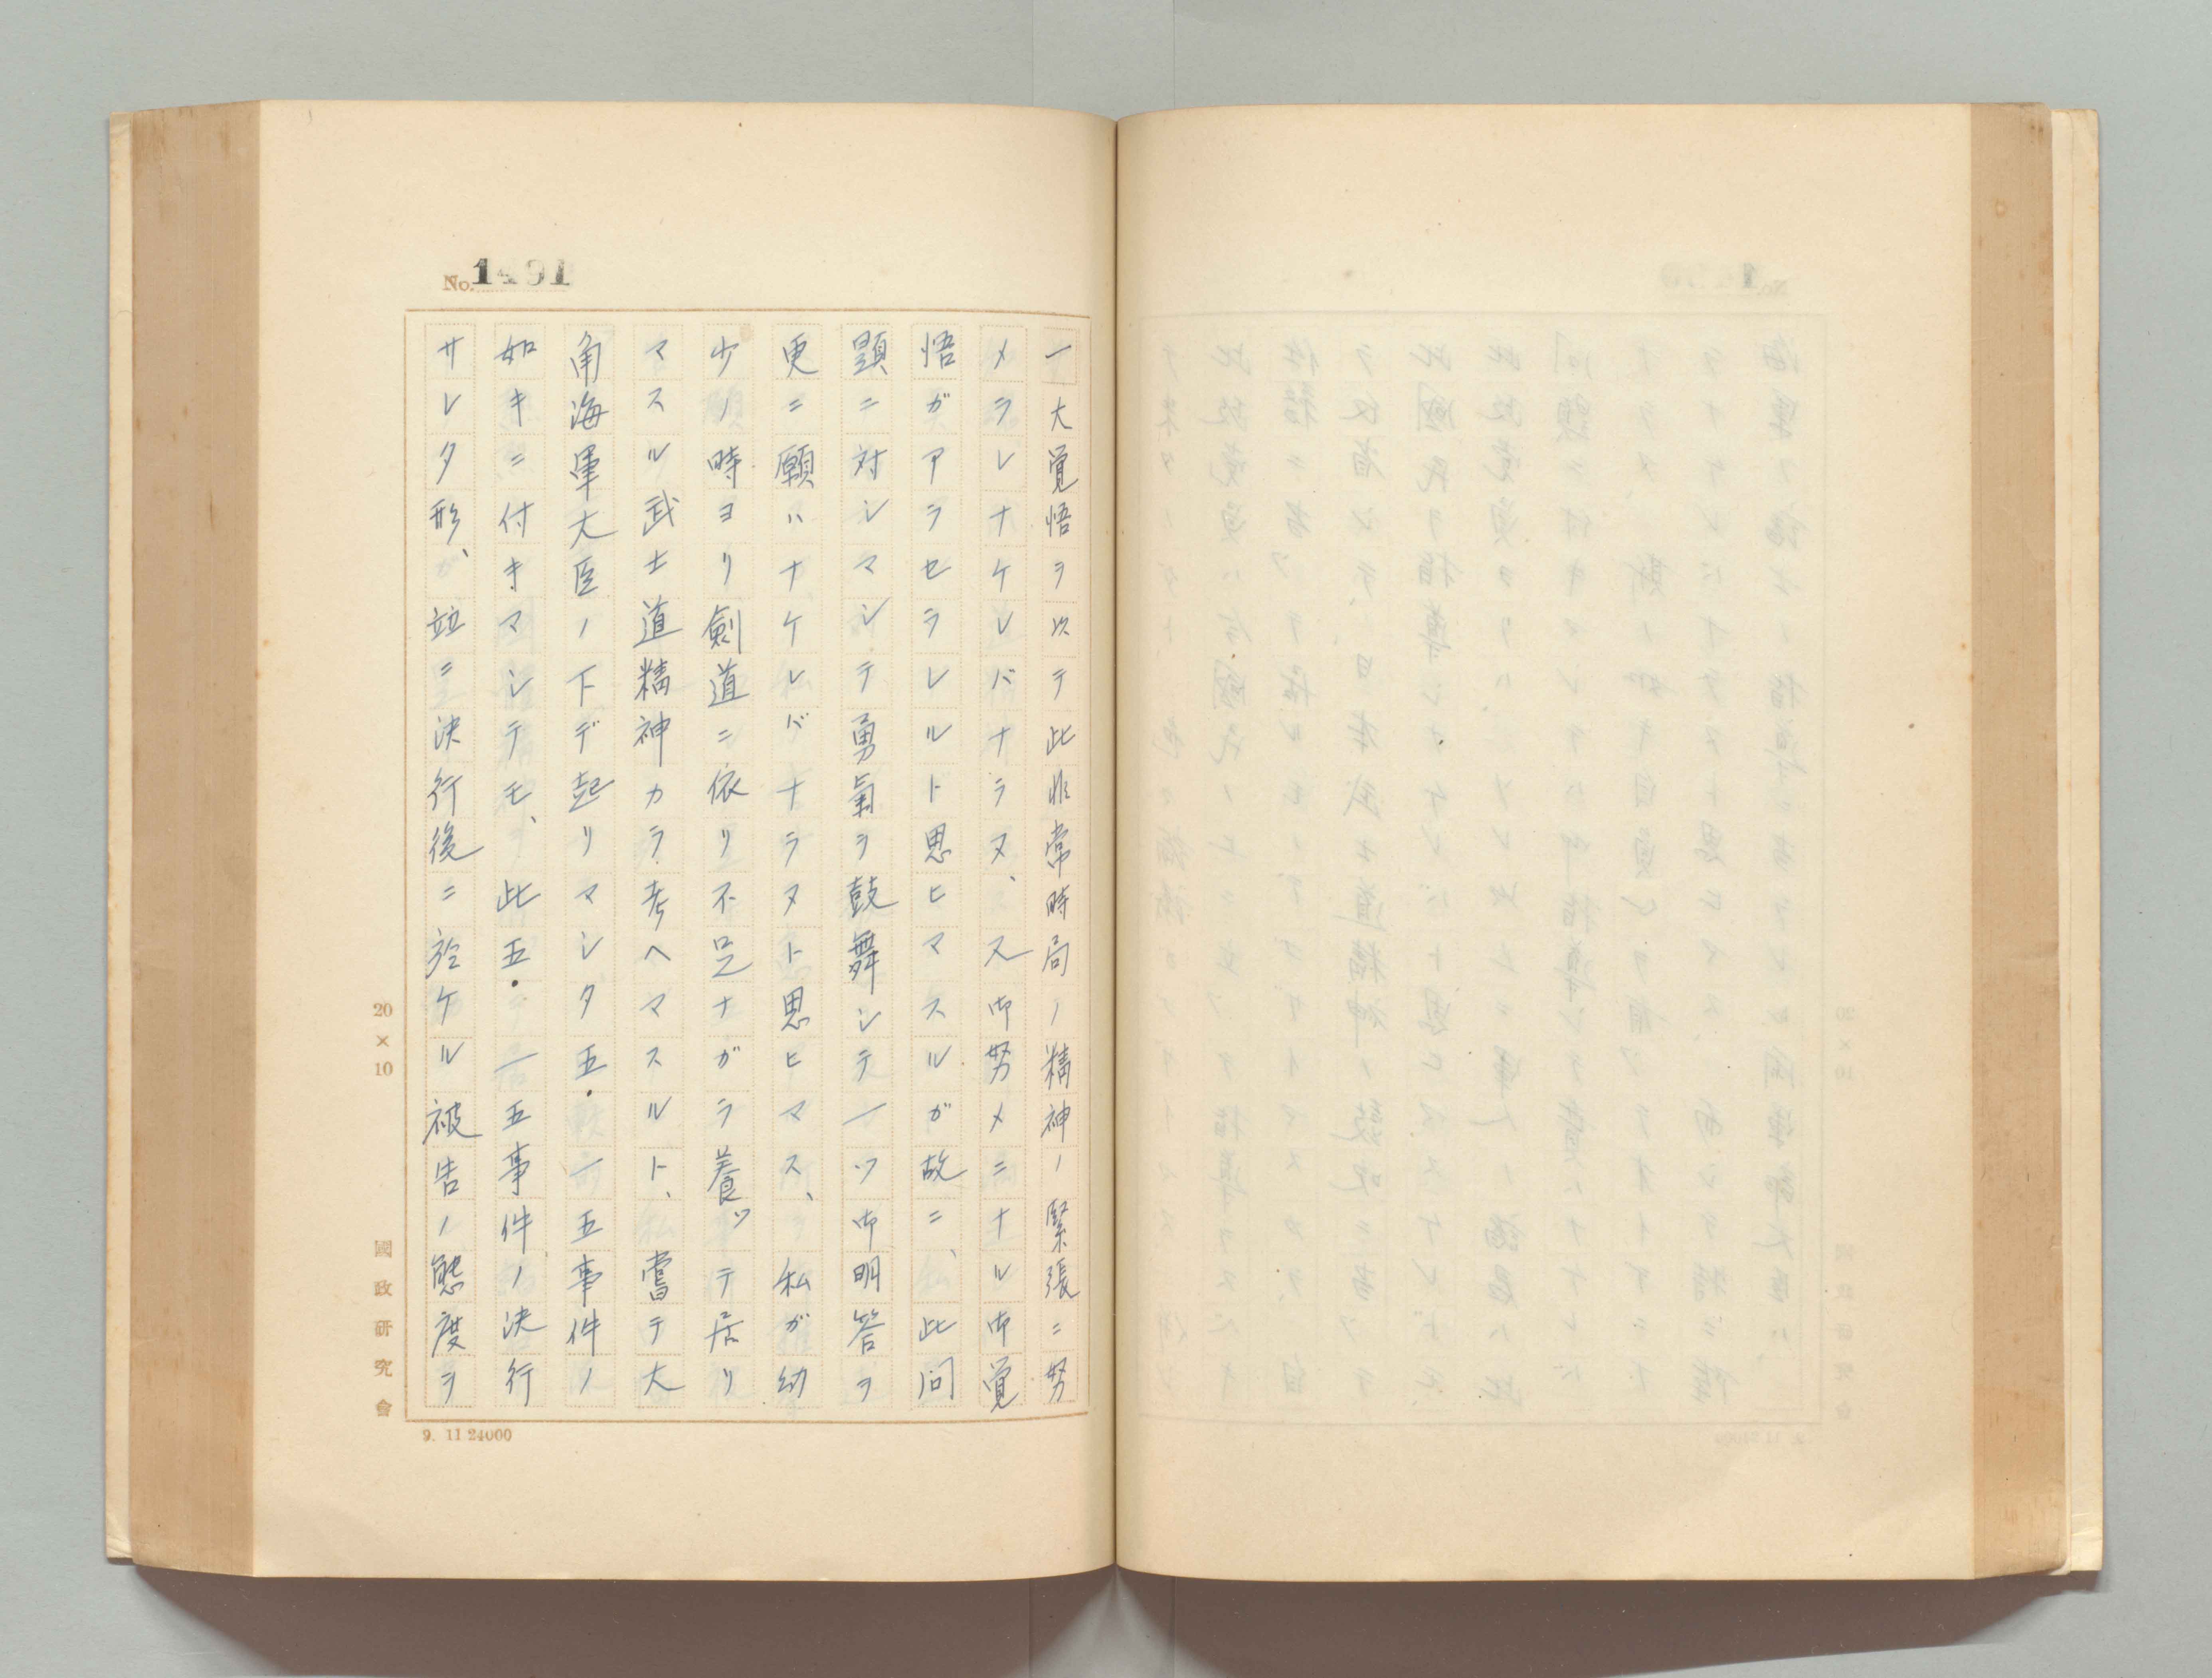 No. 1491
一大覚悟ヲ以テ此非常時局ノ精神ノ緊張ニ努
メラレナケレバナラヌ、又御努メニナル御覚
悟ガアラセラレルト思ヒマスルガ故ニ、此問
題ニ対シマシテ勇氣ヲ鼓舞シテ一ツ御明答ヲ
更ニ願ハナケレバナラヌト思ヒマス、私ガ幼
少ノ時ヨリ劍道ニ依リ不足ナガラ養ツテ居リ
マスル武士道精神カラ考ヘマスルト、嘗テ大
角海軍大臣ノ下デ起リマシタ五・一五事件ノ
如キニ付キマシテモ、此五・一五事件ノ決行
サレタ形、竝ニ決行後ニ於ケル被告ノ態度ヲ
20×10
國政研究會
9. 11 24000